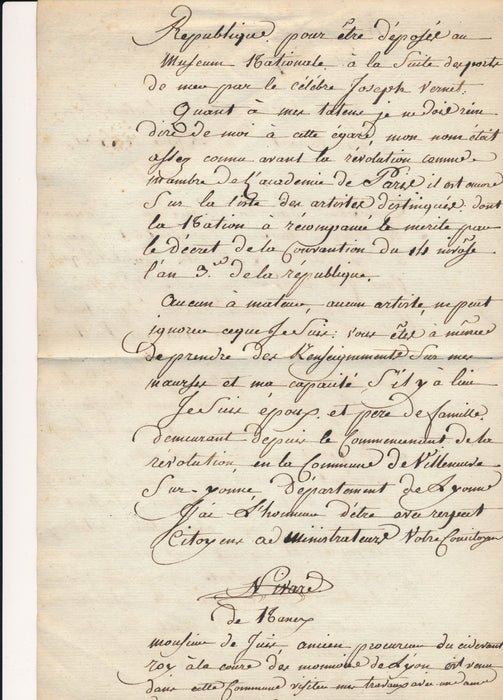 Republique. pour être déposée au
Museum Nationale à la Suite des ports
de mer par le célébre Joseph Vernet.
Quant à mes talens je ne dois rien
dire de moi à cette égard mon nom était
assez connu avant la révolution comme
membre de l'academie de Paris il est encore
Sur la liste des artistes distingués. dont
la Nation à récompensé le merite par
le décret de la Convantion du 14 nivôse
l'an 3.e de la république.
Aucun à mateur, aucun artiste, ne peut
ignorer ceque Je Suis: vous êtes à même
de prendre des Renseignments Sur mes
mœurses et ma capacité S'il y à lieu
Je Suis époux. et pere de famille.
demeurant depuis le Commencement de la
révolution en la Commune de Villeneuve
Sur-yonne Département de Lyonne
J'ai L'honneur d'être avec respect
Citoyens administrateurs Votre Concitoyen
Nivard
de Nancy
monsieur de Juis ancien procureur du cidevant
roy à la coure des monnoie de Lyon est venu
dans cette Commune visiter mes travaux avec une dame